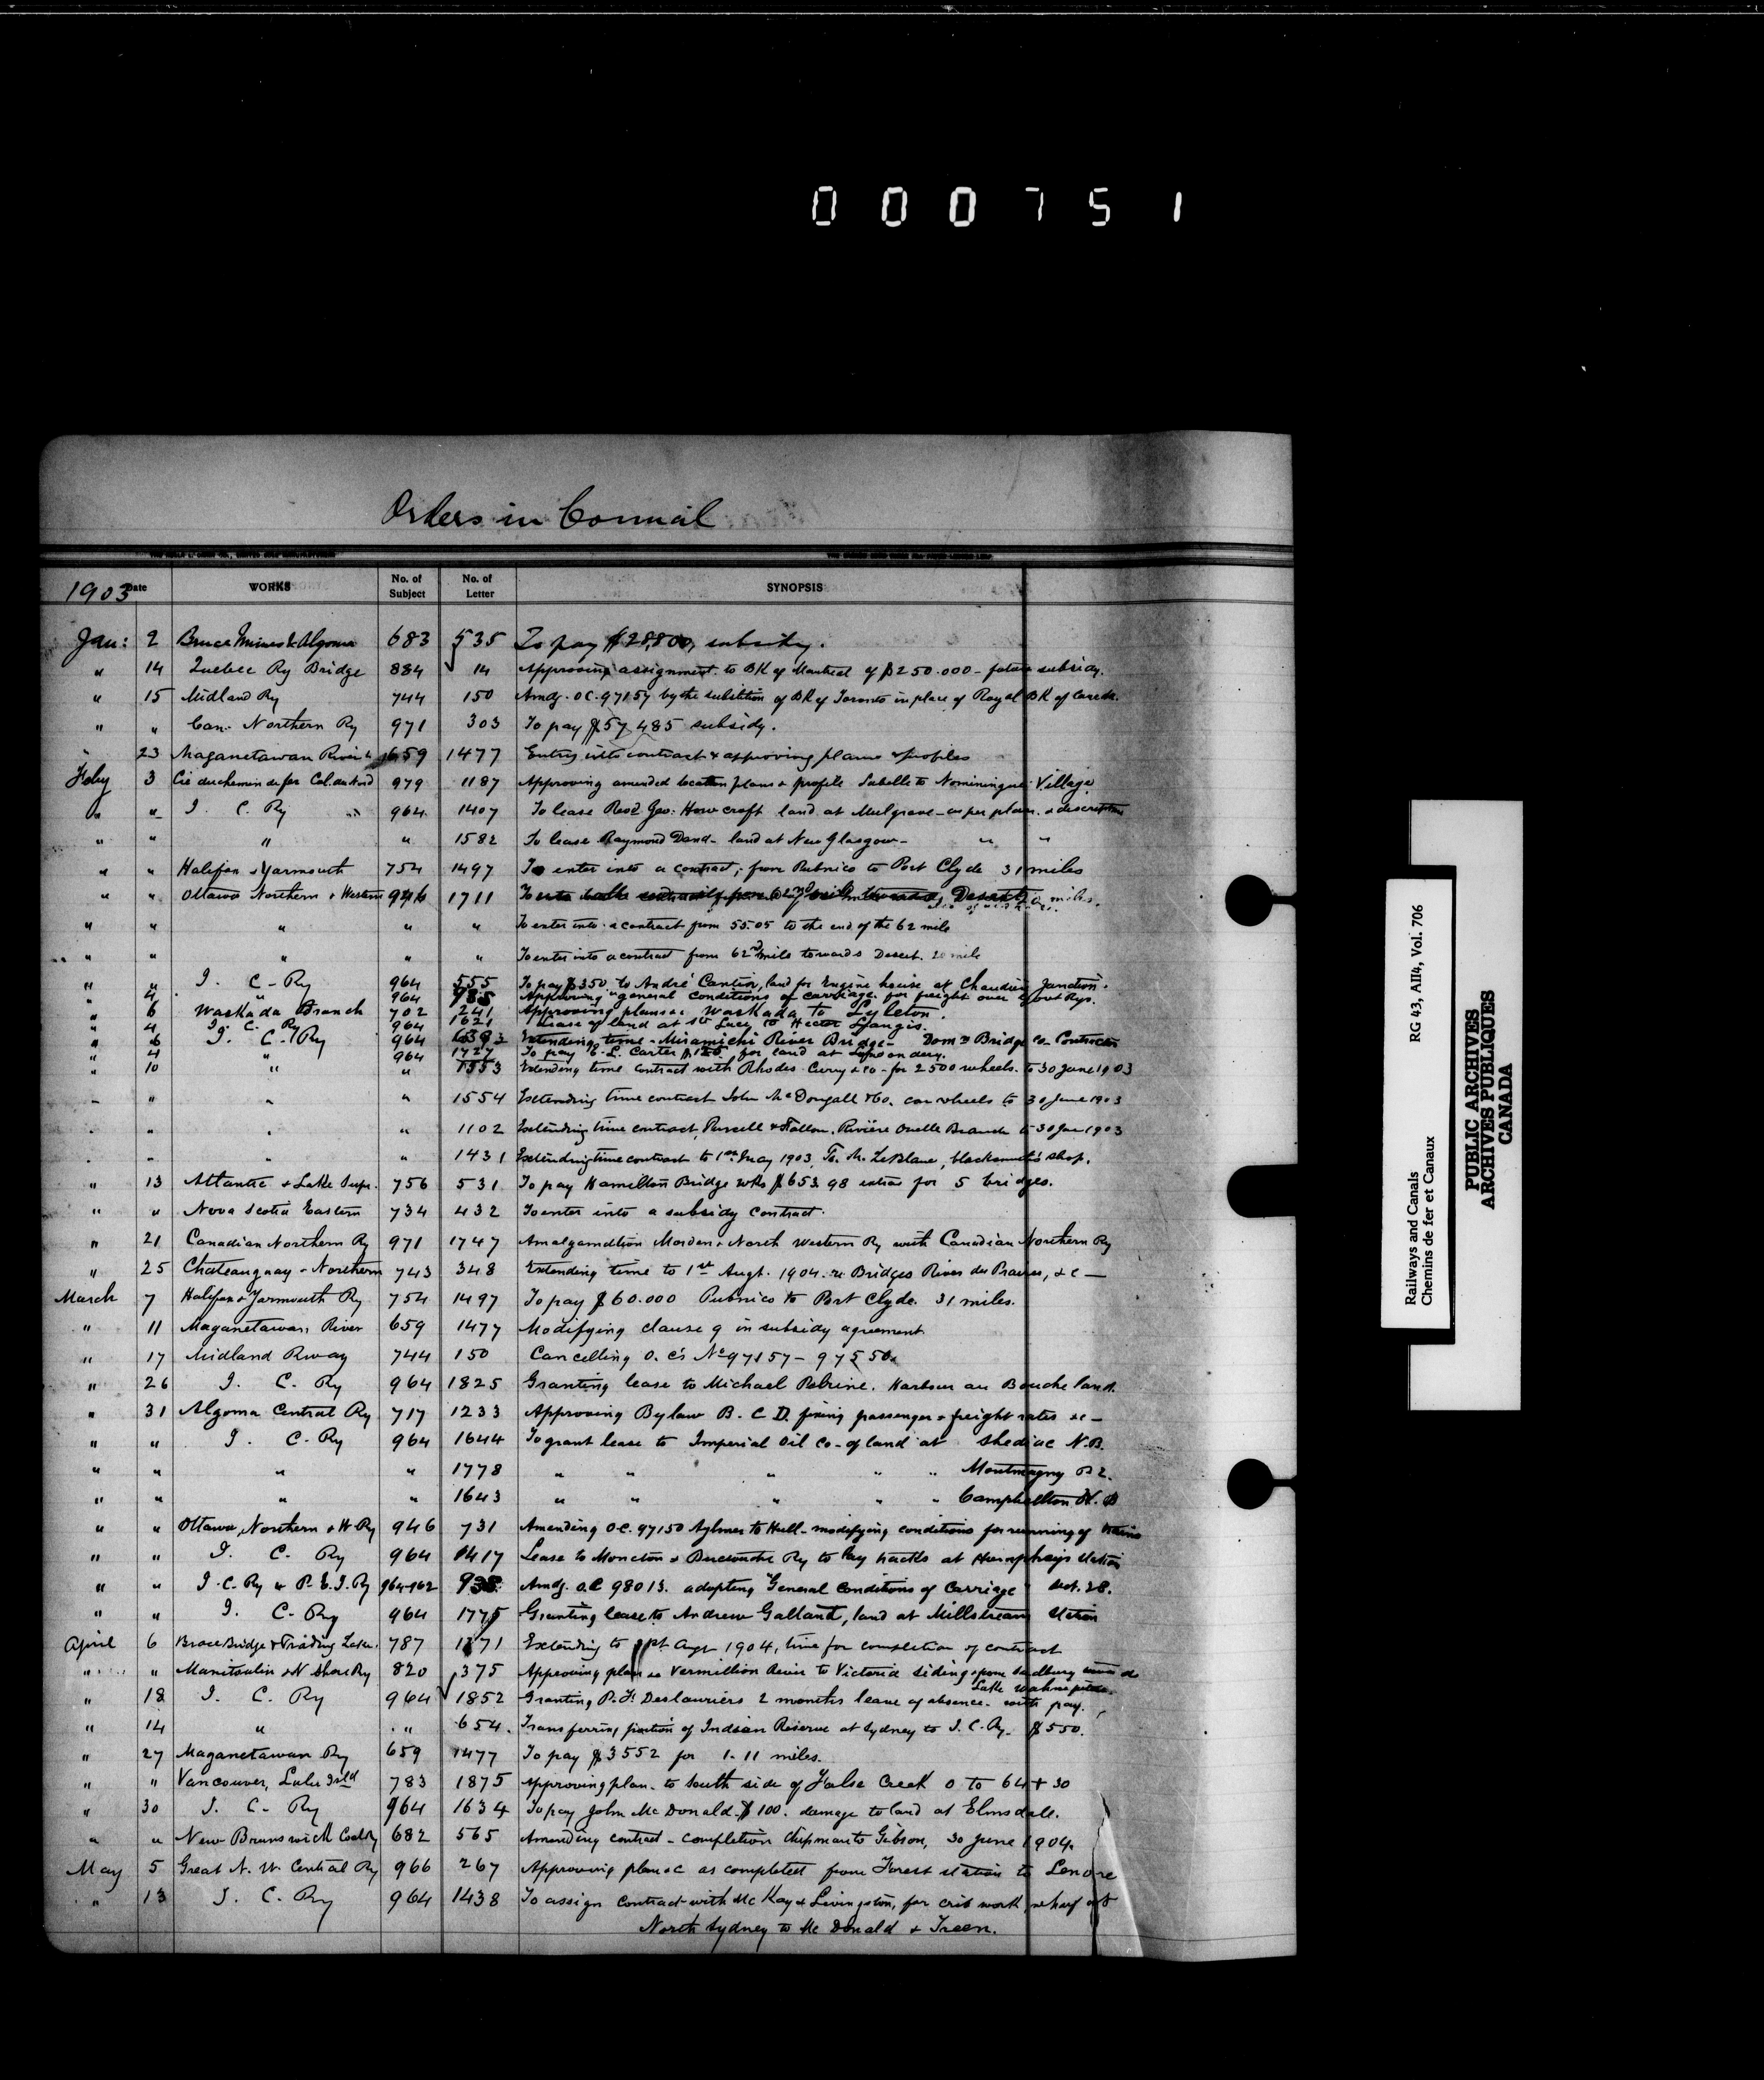 000751
Orders in Council
1903 Date WORKS No. of Subject No. of Letter SYNOPSIS
Jan: 2 Bruce Mines & Algoma 683 535 To pay $28,800, subsidy.
" 14 Quebec Ry Bridge 884 14 Approving assignment to BK of Montreal of $250.000 - future subsidy.
" 15 Midland Ry 744 150 Amdg. OC. 97157 by the substition of BK of Toronto in place of Royal BK of Canada.
" " Can. Northern Ry 971 303 To pay $57,485 subsidy.
" 23 Maganetawan River 659 1477 Entry into contract & approving plans & profiles
Feby 3 Cie du chemin de fer Col. du Nord 979 1187 Approving amended location plans & profile Labelle to Nominingue Village
" " I. C. Ry " 964 1407 To lease Revd Geo. Howcroft land at Mulgrave - as per plan & description
" " " " 1582 To lease Raymond Dand - land at New Glasgow - " "
" " Halifax & Yarmouth 754 1497 To enter into a contract, from Pubnico to Port Clyde 31 miles
" " Ottawa Northern & Western 946 1711 miles.
" " " " " To enter into a contract from 55.05 to the end of the 62 mile
" " " " " To enter into a contract from 62nd mile towards Desert. 20 mile
" " I. C. Ry 964 555 To pay $350 to André Cantin, land for Engine house at Chaudière Junction.
" 4 " 964 985 Approving "general conditions of carriage for freight over Govt Rys.
" 6 Waskada Branch 702 241 Approving plans &c Waskada to Lyleton.
" 4 I. C. Ry 964 1621 Lease of land at Ste Lucy to Hector Langis.
" 6 I. C. Ry 964 Extending time - Miramichi River Bridge - Domn Bridge Co - Contractor
" 4 " 964 1727 To pay C. L. Carter $125 for land at Londonderry.
" 10 " " 1553 Extending time contract with Rhodes Curry & Co - for 2500 wheels to 30 June 1903
" " " " 1554 Extending time contract John McDougall & Co. car wheels to 30 June 1903
" " " " 1102 Extending time contract, Purcell & Fallon. Rivière Ouelle Branch to 30 June 1903
" " " " 1431 Extending time contract to 1st May 1903, M. LeBlanc, blacksmith's shop.
" 13 Atlantic & Lake Supr. 756 531 To pay Hamilton Bridge Wks $653.98 extra for 5 bridges.
" " Nova Scotia Eastern 734 432 To enter into a subsidy contract.
" 21 Canadian Northern Ry 971 1747 Amalgamation Morden & North Western Ry with Canadian Northern Ry
" 25 Chateauguay & Northern 743 348 Extending time to 1st Augt. 1904. re Bridges River des Prairies, &c —
March 7 Halifax & Yarmouth Ry 754 1497 To pay $60.000 Pubnico to Port Clyde. 31 miles.
" 11 Maganetawan River 659 1477 Modifying clause 9 in subsidy agreement
" 17 Midland Rway 744 150 Cancelling O. C's No 97157 - 97550.
" 26 I. C. Ry 964 1825 Granting lease to Michael Petrine. Harbour au Bouche land.
" 31 Algoma Central Ry 717 1233 Approving Bylaw B. C D. fixing passenger & freight rates &c -
" " I. C. Ry 964 1644 To grant lease to Imperial Oil Co - of land at Shediac N.B.
" " " " 1778 " " " " " Montmagny P.Q.
" " " " 1643 " " " " " Campbellton N. B
" " Ottawa, Northern & W. Ry 946 731 Amending O-C. 97150 Aylmer to Hull - modifying conditions for running of trains
" " I. C. Ry 964 1417 Lease to Moncton & Buctouche Ry to lay tracks at Humphreys station
" " I. C. Ry & P. E. I. Ry 964-962 935 Amdg. O.C 98013. adopting "General Conditions of Carriage" sect. 28.
" " I. C. Ry 964 1775 Granting lease to Andrew Galland, land at Millstream station
April 6 Bracebridge & Trading Lake. 787 1371 Extending to 1st Augt 1904, time for completion of contract
" " Manitoulin & N Shore Ry 820 375 Approving plan re Vermillion River to Victoria siding & from Sudbury towards
Lake Wahnapitae.
" 18 I. C. Ry 964 1852 Granting P. F. Deslauriers 2 months leave of absence - with pay.
" 14 " " 654. Transferring portion of Indian Reserve at Sydney to I. C. Ry. $550.
" 27 Maganetawan Ry 659 1477 To pay $3552 for 1.11 miles.
" " Vancouver, Lulu Isld 783 1875 Approving plan. to South side of False Creek 0 to 64 + 30
" 30 I. C. Ry 964 1634 To pay John McDonald. $100. damage to land at Elmsdale.
" " New Brunswick Coal Ry 682 565 Amending contract - completion Chipman to Gibson, 30 June 1904.
May 5 Great N. W. Central Ry 966 267 Approving plan &c as completed from Forest station to Lenore
" 13 I. C. Ry 964 1438 To assign contract with McKay & Livingston, for crib work, wharf at
North Sydney to McDonald & Treen.
Railways and Canals RG 43, AII4, Vol. 706
Chemins de fer et Canaux
PUBLIC ARCHIVES
ARCHIVES PUBLIQUES
CANADA